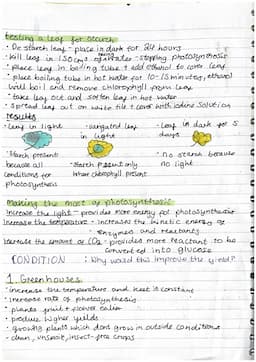 Testing a leaf for starch
• De starch leaf - place in dark for 24 hours
• Kill leaf in water - stopping photosynthesis
• Place leaf in boiling tube + add ethanol to cover leaf
• place boiling tube in hot water for 10-15 minutes, ethanol
will boil and remove chlorophyll from leaf
• take leaf out and soften leaf in hot water
• spread leaf out on white tile + cover with iodine solution
results
- leaf in light
- variegated leaf
- leaf in dark for 5
days
- Starch present
because all
conditions for
photosynthesis
- Starch present only
where chlorophyll present
- no starch because
no light
Making the most of photosynthesis
Increase the light - provides more energy for photosynthesis
Increase the temperature - increases the kinetic energy of
enzymes and reactants
Increase the amount of CO2 - provides more reactant to be
converted into glucose
CONDITION : Why would this improve the yield?
1. Greenhouses
• increase the temperature and keep it constant
• increase rate of photosynthesis
• plants fruit + flower earlier
• produce higher yields
• growing plants which dont grow in outside conditions
• clean, insect-free crops